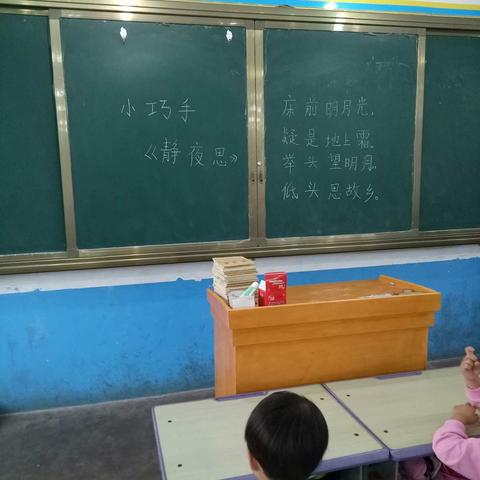 小巧手
《静夜思》
床前明月光,
疑是地上霜。
举头望明月。
低头思故乡。